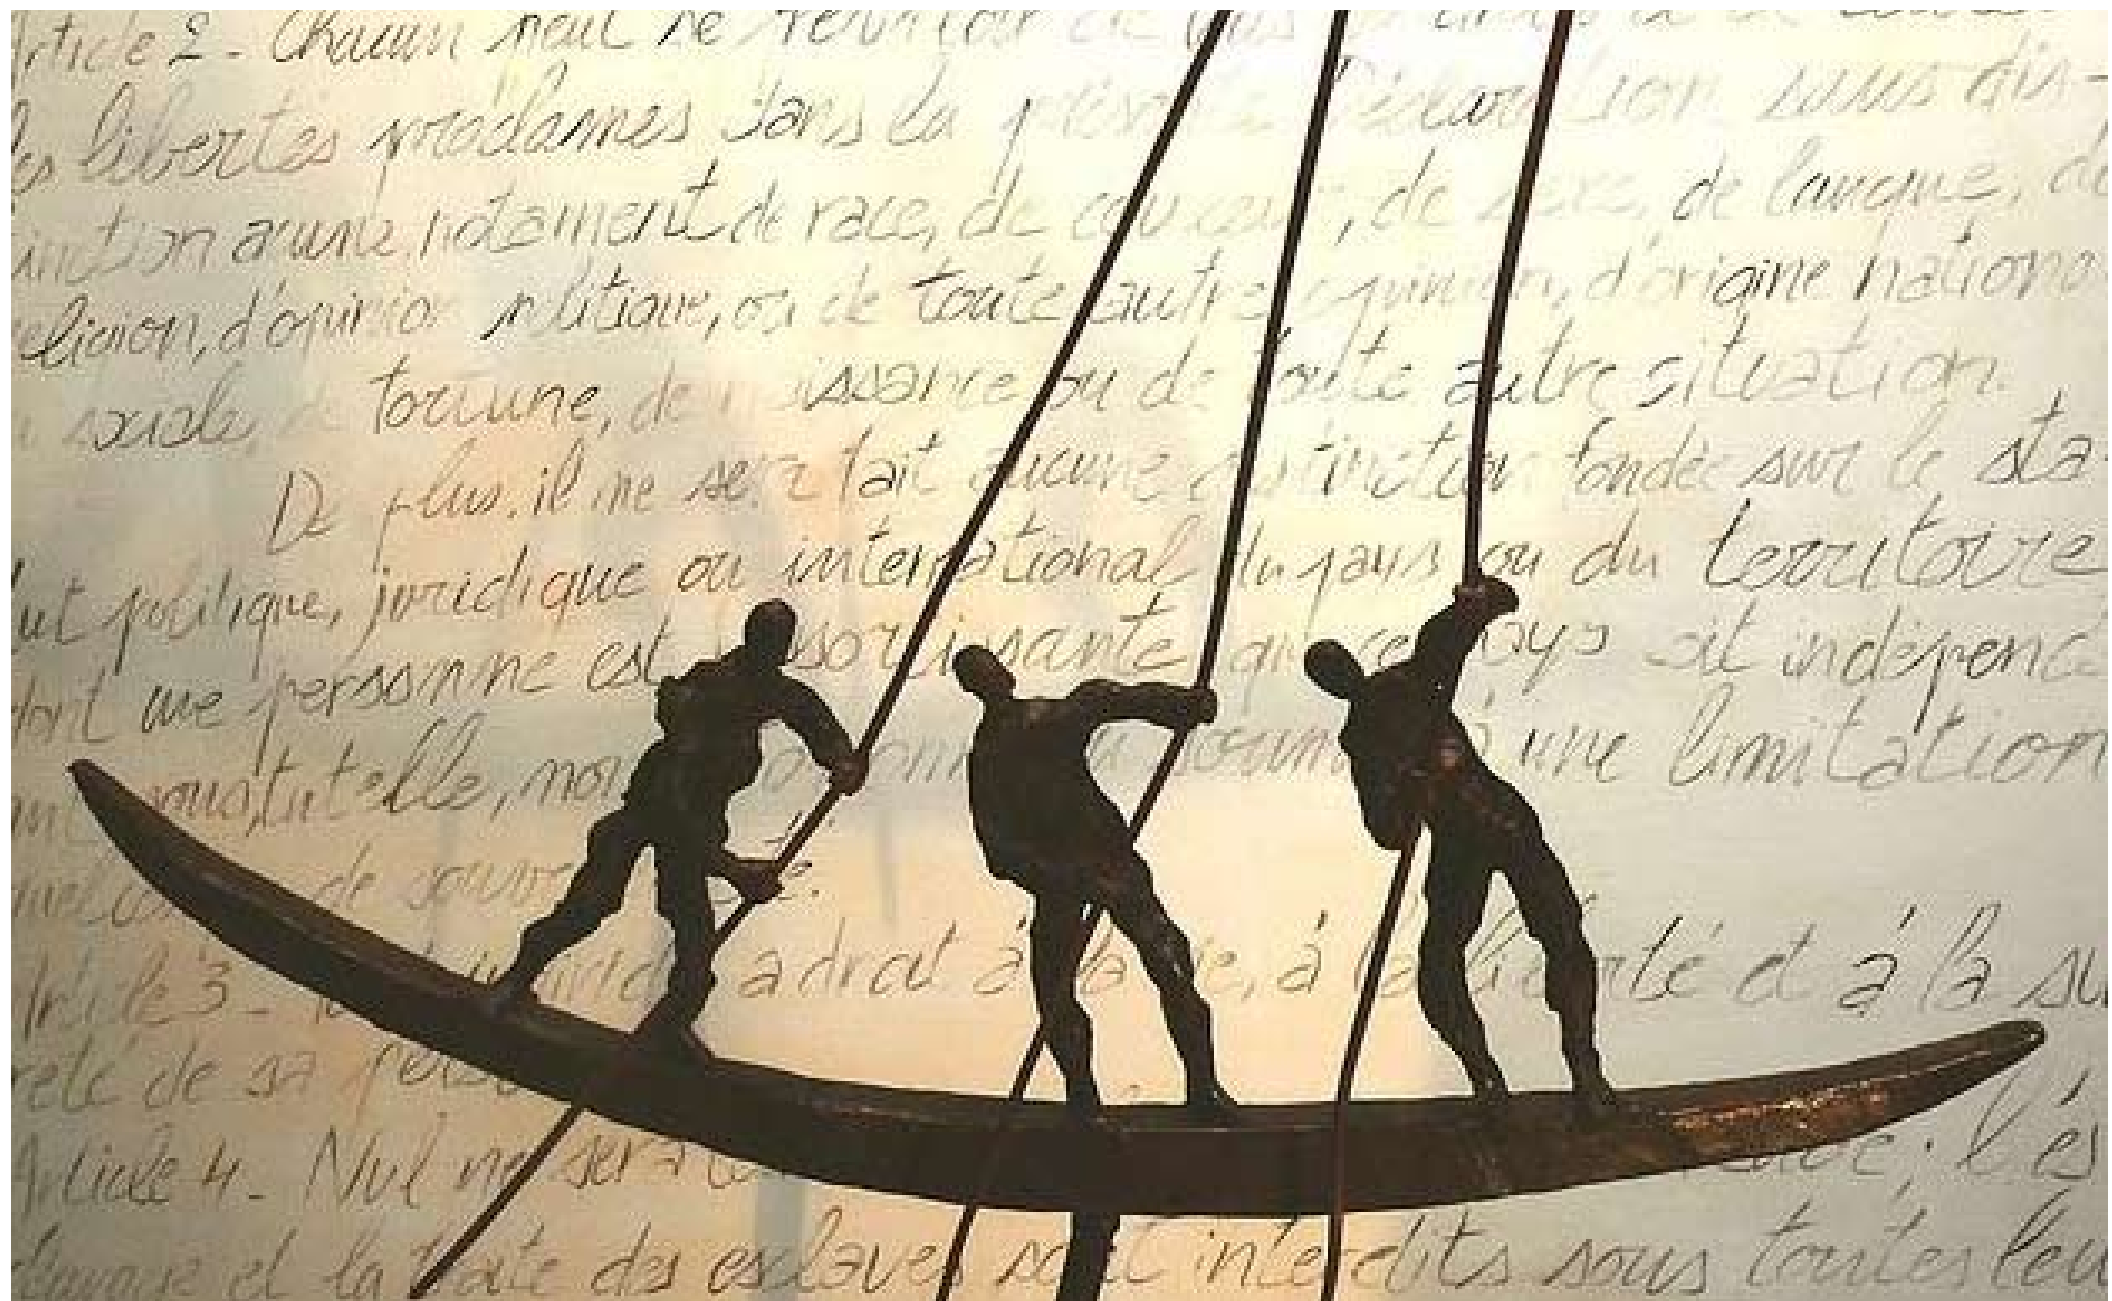 Article 2 - Chacun peut se
les libertés proclamées dans la présente Déclaration sans dis-
tinction aucune, notament de race, de couleur, de sexe, de langue, de
religion, d'opinion politique, ou de toute autre opinion, d'origine nationa
sociale, de fortune, de naissance ou de toute autre situation.
De plus, il ne sera fait aucune distinction fondée sur le sta-
tut politique, juridique ou international du pays ou du territoire
dont une personne est ressortissante, que ce pays soit indépend
sous tutelle, non à une limitation
de
Article 3 - a droit à la vie, à la liberté et à la su
reté de sa
Article 4 - Nul ne sera les
et la traite des esclaves sont interdits sous toutes leu